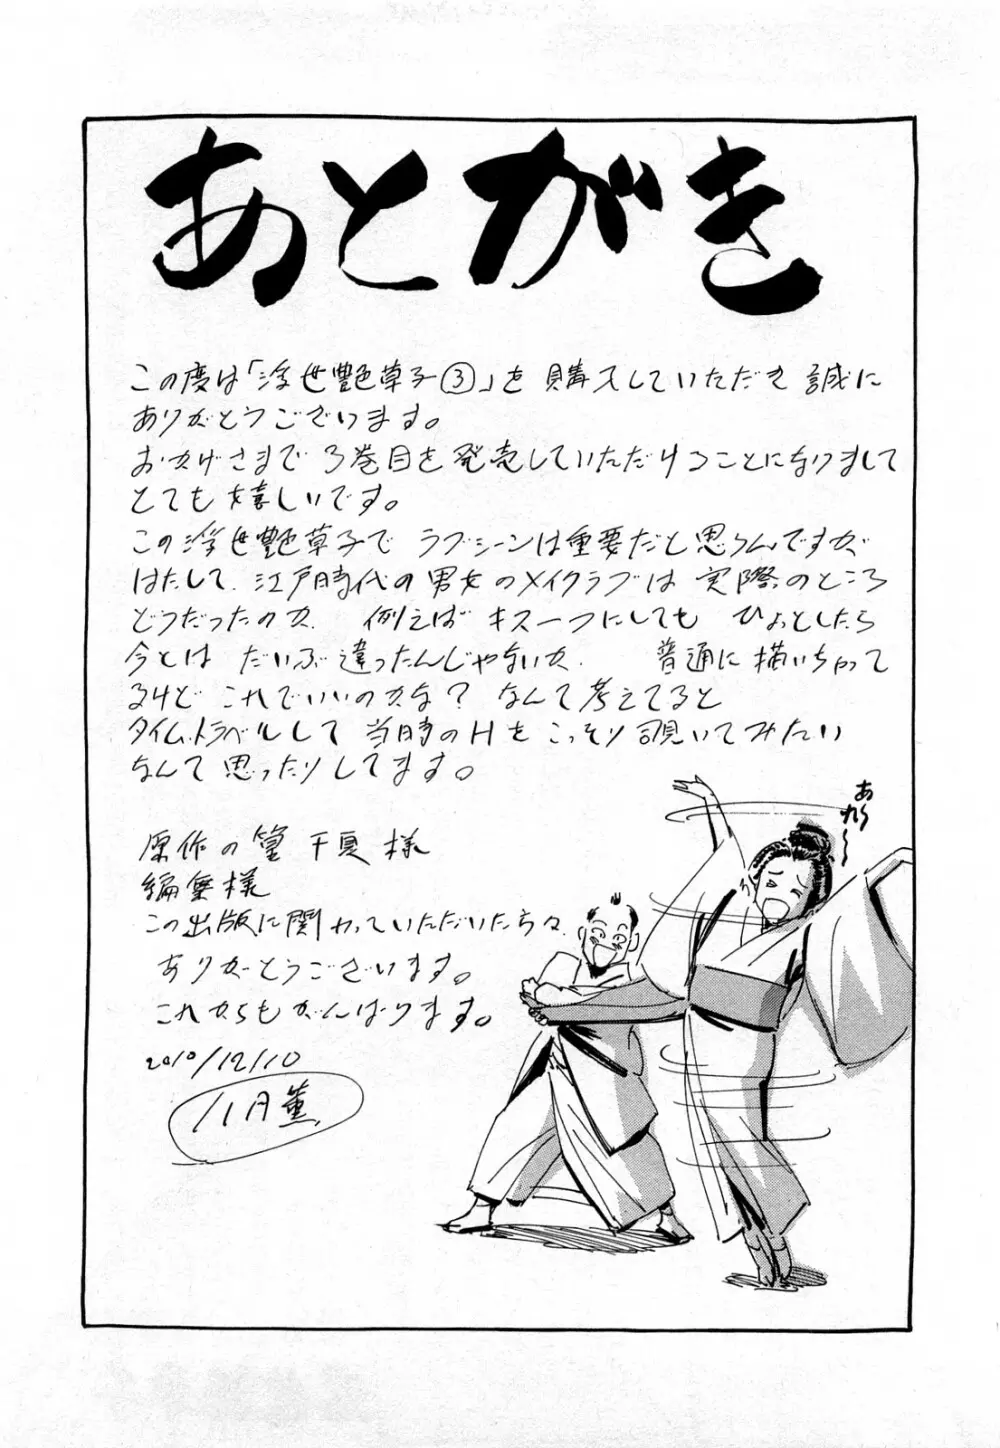 あとがき
この度は「浮世艶草子③」を購入していただき誠に
ありがとうございます。
おかげさまで3巻目を発売していただけることになりまして
とても嬉しいです。
この浮世艶草子でラブシーンは重要だと思うんですが
はたして、江戸時代の男女のメイクラブは実際のところ
どうだったのか 例えばキス一つにしてもひょっとしたら
今とはだいぶ違ったんじゃないか 普通に描いちゃって
るけどこれでいいのかな?なんて考えてると
タイムトラベルして当時のHをこっそり覗いてみたい
なんて思ったりしてます。
原作の篁千夏様
編集様
この出版に関わっていただいた方々
ありがとうございます。
これからもがんばります。
2010/12/10
八月薫
あ〜れ〜